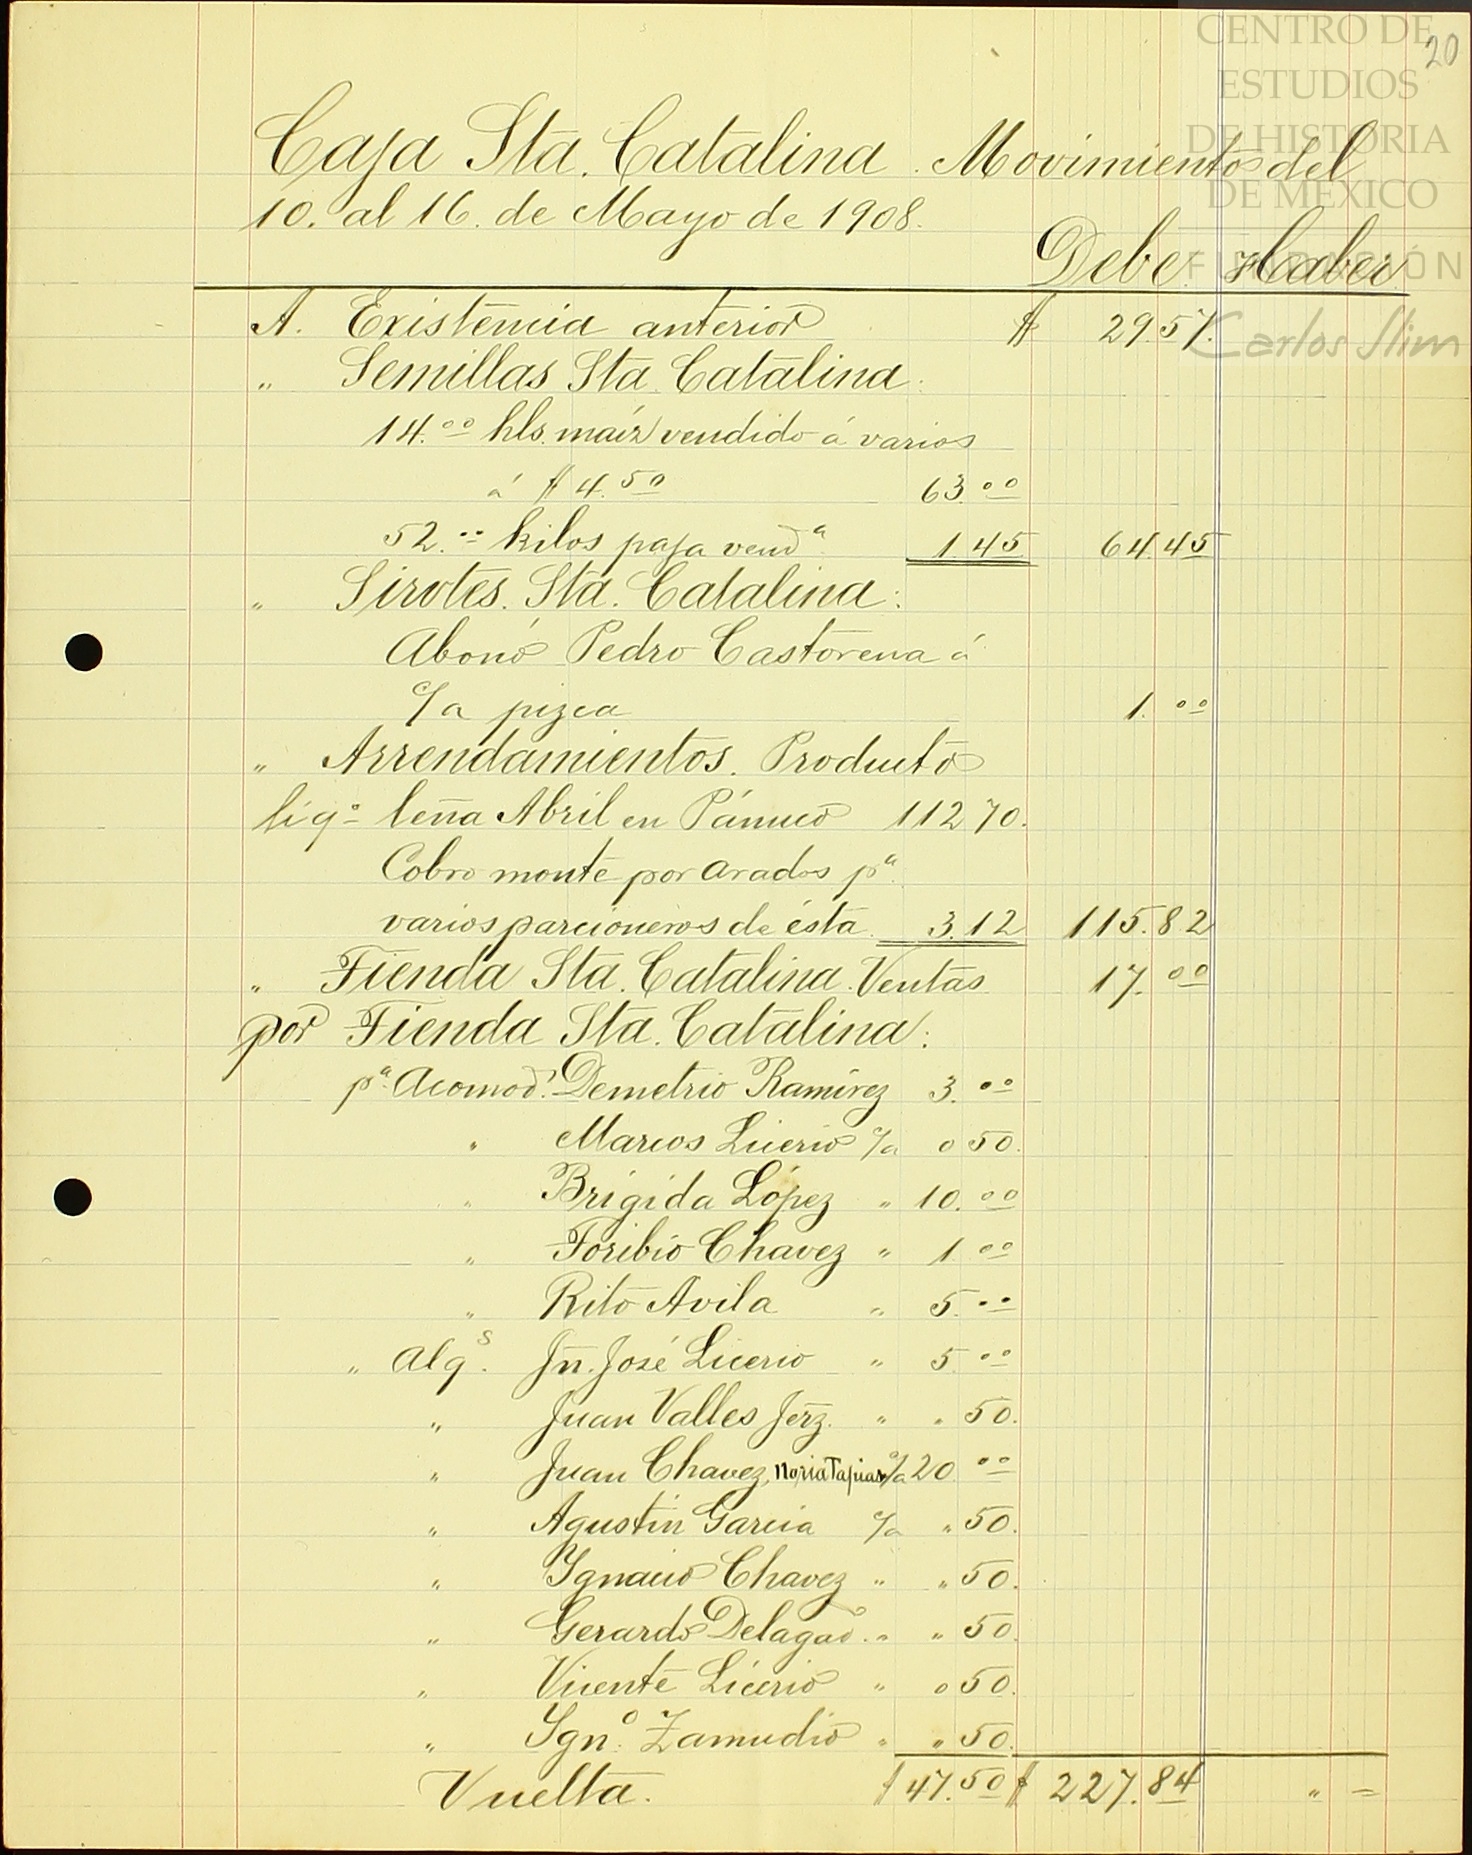 CENTRO DE
ESTUDIOS
DE HISTORIA
DE MÉXICO
FUNDACIÓN
Carlos Slim
20
Caja Sta. Catalina. Movimiento del
10. al 16. de Mayo de 1908.
Debe. Haber
A. Existencia anterior $ 29.57.
" Semillas Sta. Catalina:
14.00 hls. maíz vendido á varios
á $ 4.50 63.00
52.00 kilos paja vend.a 1.45 64.45
" Sirotes. Sta. Catalina:
Abonó Pedro Castorena á
c/a pizca 1.00
" Arrendamientos. Producto
líq.o leña Abril en Pánuco 112 70.
Cobro monte por arados p.a
varios parcioneros de ésta. 3.12 115.82
" Tienda Sta. Catalina. Ventas 17.00
por Tienda Sta. Catalina:
p.a Acomod.s Demetrio Ramírez 3.00
" Marcos Licerio c/a 0 50.
" Brígida López " 10.00
" Toribio Chavez " 1.00
" Rito Avila " 5.00
" Alg.s Jn. José Licerio " 5.00
" Juan Valles Jerz. " " 50.
" Juan Chavez, Noria Tapias c/a 20.00
" Agustin Garcia c/a " 50.
" Ygnacio Chavez " " 50.
" Gerardo Delagado. " " 50.
" Vicente Licerio " 0 50.
" Ygn.o Zamudio " " 50.
Vuelta. $ 47.50 $ 227.84 " =